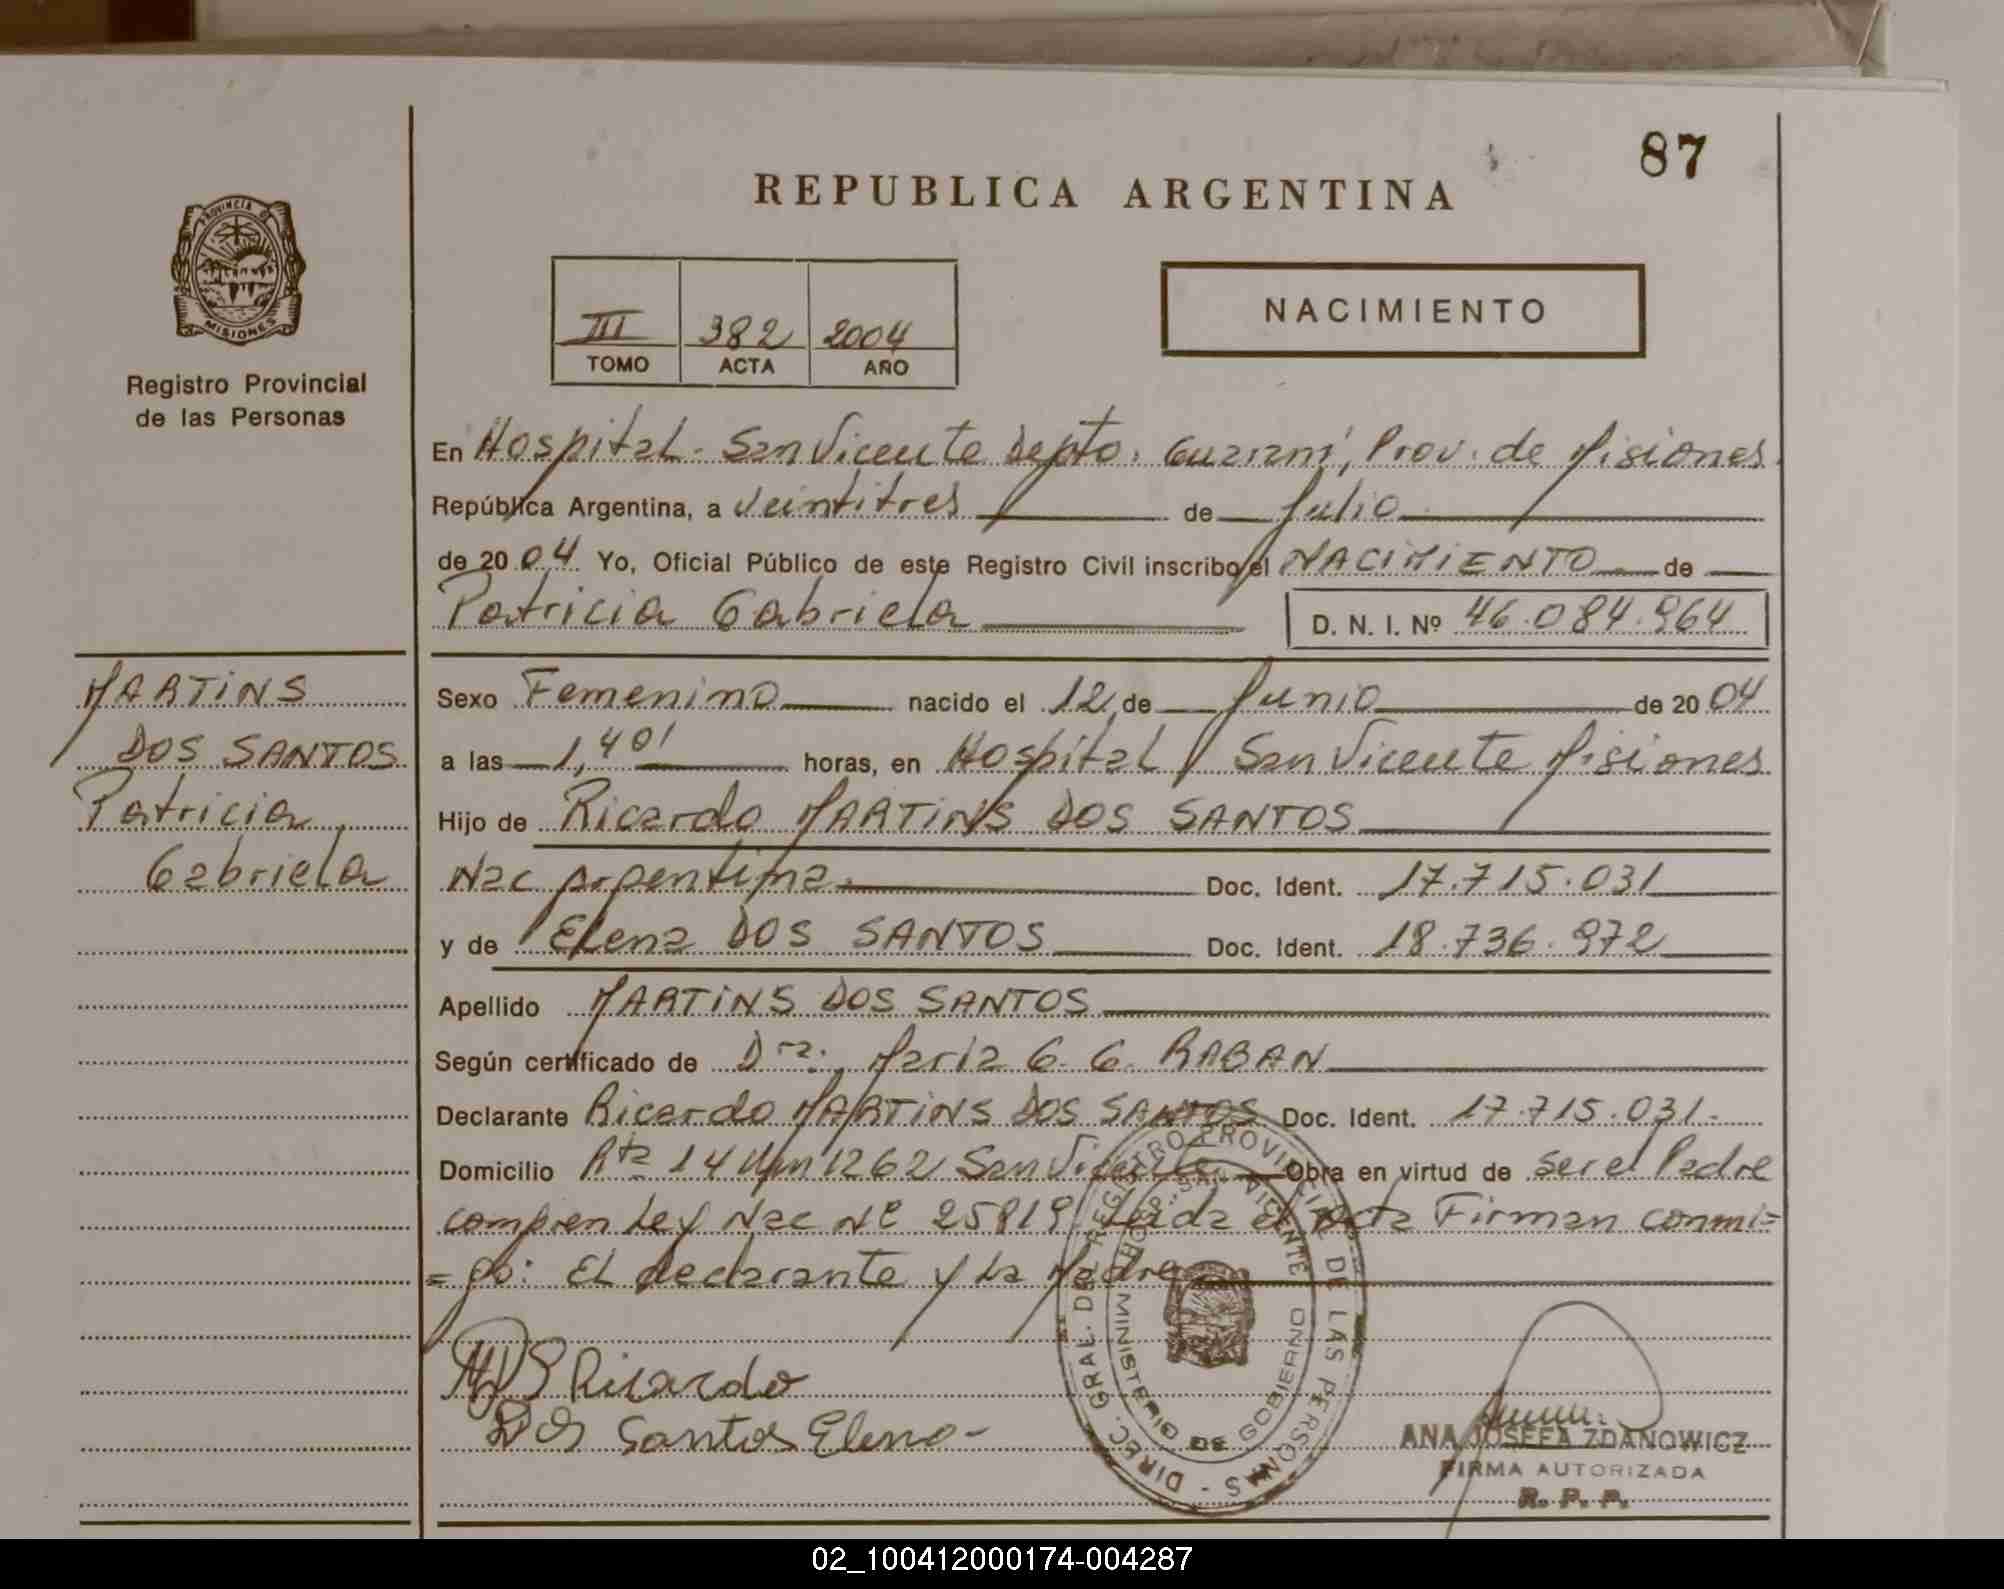 87
REPUBLICA ARGENTINA
PROVINCIA DE
MISIONES
Registro Provincial
de las Personas
III 382 2004
TOMO ACTA AÑO
NACIMIENTO
En Hospital - San Vicente Depto. Guaraní, Prov. de Misiones
República Argentina, a veintitres de Julio
de 2004 Yo, Oficial Público de este Registro Civil inscribo el NACIMIENTO de
Patricia Gabriela D. N. I. Nº 46.084.964
MARTINS
DOS SANTOS
Patricia
Gabriela
Sexo Femenino nacido el 12 de Junio de 2004
a las 1,40' horas, en Hospital San Vicente Misiones
Hijo de Ricardo MARTINS DOS SANTOS
Nac Argentina Doc. Ident. 17.715.031
y de Elena DOS SANTOS Doc. Ident. 18.736.972
Apellido MARTINS DOS SANTOS
Según certificado de Dra. Maria G. G. RABAN
Declarante Ricardo MARTINS DOS SANTOS Doc. Ident. 17.715.031-
Domicilio Rta 14 Km 1262 San Vicente Obra en virtud de ser el Padre
compren Ley Nac Nº 25819. Leida el Acta Firman conmi=
=go: El declarante y la Madre
MDS Ricardo
Dos Santos Elena-
DIREC. GRAL. DEL REGISTRO PROVINCIAL DE LAS PERSONAS -
HOSP. SAN VICENTE
MINISTERIO DE GOBIERNO
ANA JOSEFA ZDANOWICZ
FIRMA AUTORIZADA
R. P. P.
02_100412000174-004287